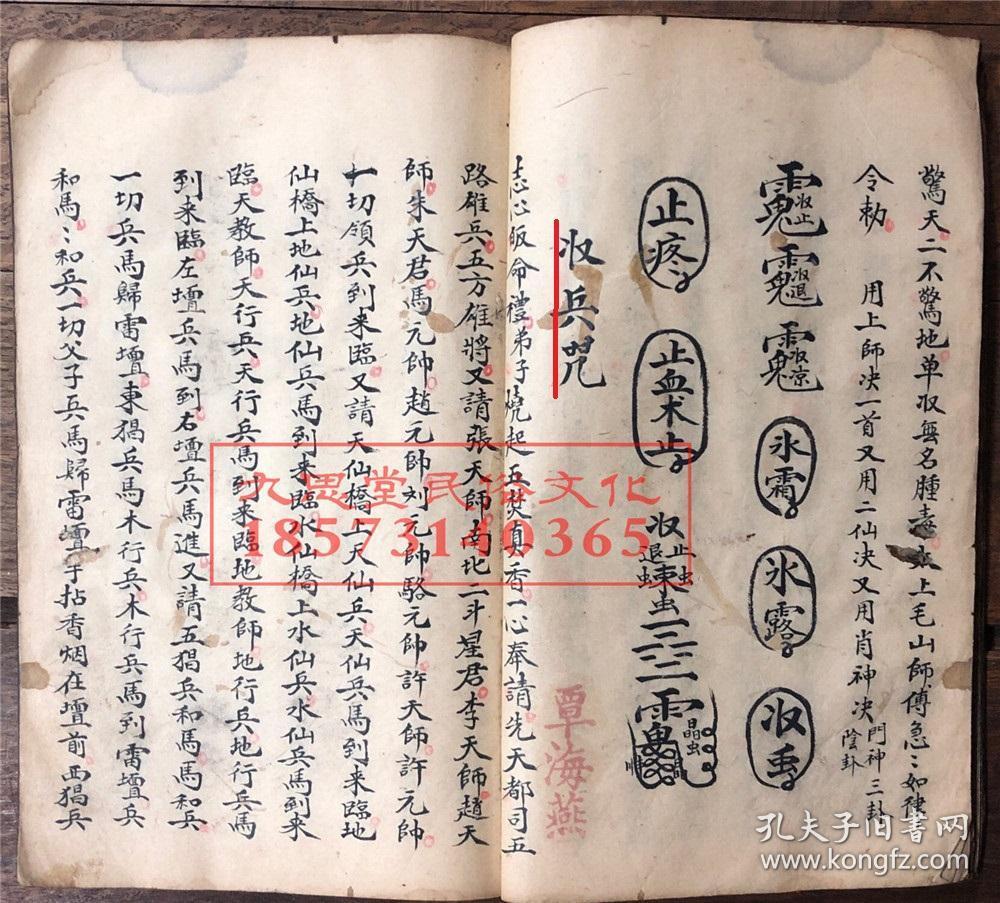 驚天二不驚地单收無名腫毒上毛山師傅急〻如律
令勅 用上師决一首又用二仙决又用肖神决門神陰卦三卦
收止 收退 收京 氷霜 氷露 收
止疼 止血术止 收 止虫 退虫 晶虫
收兵咒
志心皈命禮弟子燒起五焚真香一心奉請先天都司五
路雄兵五方雄將又請張天師南北二斗星君李天師趙天
師朱天君馬元帥趙元帥刘元帥駱元帥許天師許元帥
一切領兵到来臨又請天仙橋上天仙兵天仙兵馬到来臨地
仙橋上地仙兵地仙兵馬到来臨水仙橋上水仙兵水仙兵馬到来
臨天教師天行兵天行兵馬到来臨地教師地行兵地行兵馬
到来臨左壇兵馬到右壇兵馬進又請五猖兵和馬馬和兵
一切兵馬歸雷壇東猖兵馬木行兵木行兵馬到雷壇兵
和馬〻和兵一切父子兵馬歸雷壇手拈香烟在壇前西猖兵
覃海燕
九思堂民俗文化
18573140365
孔夫子旧书网
www.kongfz.com